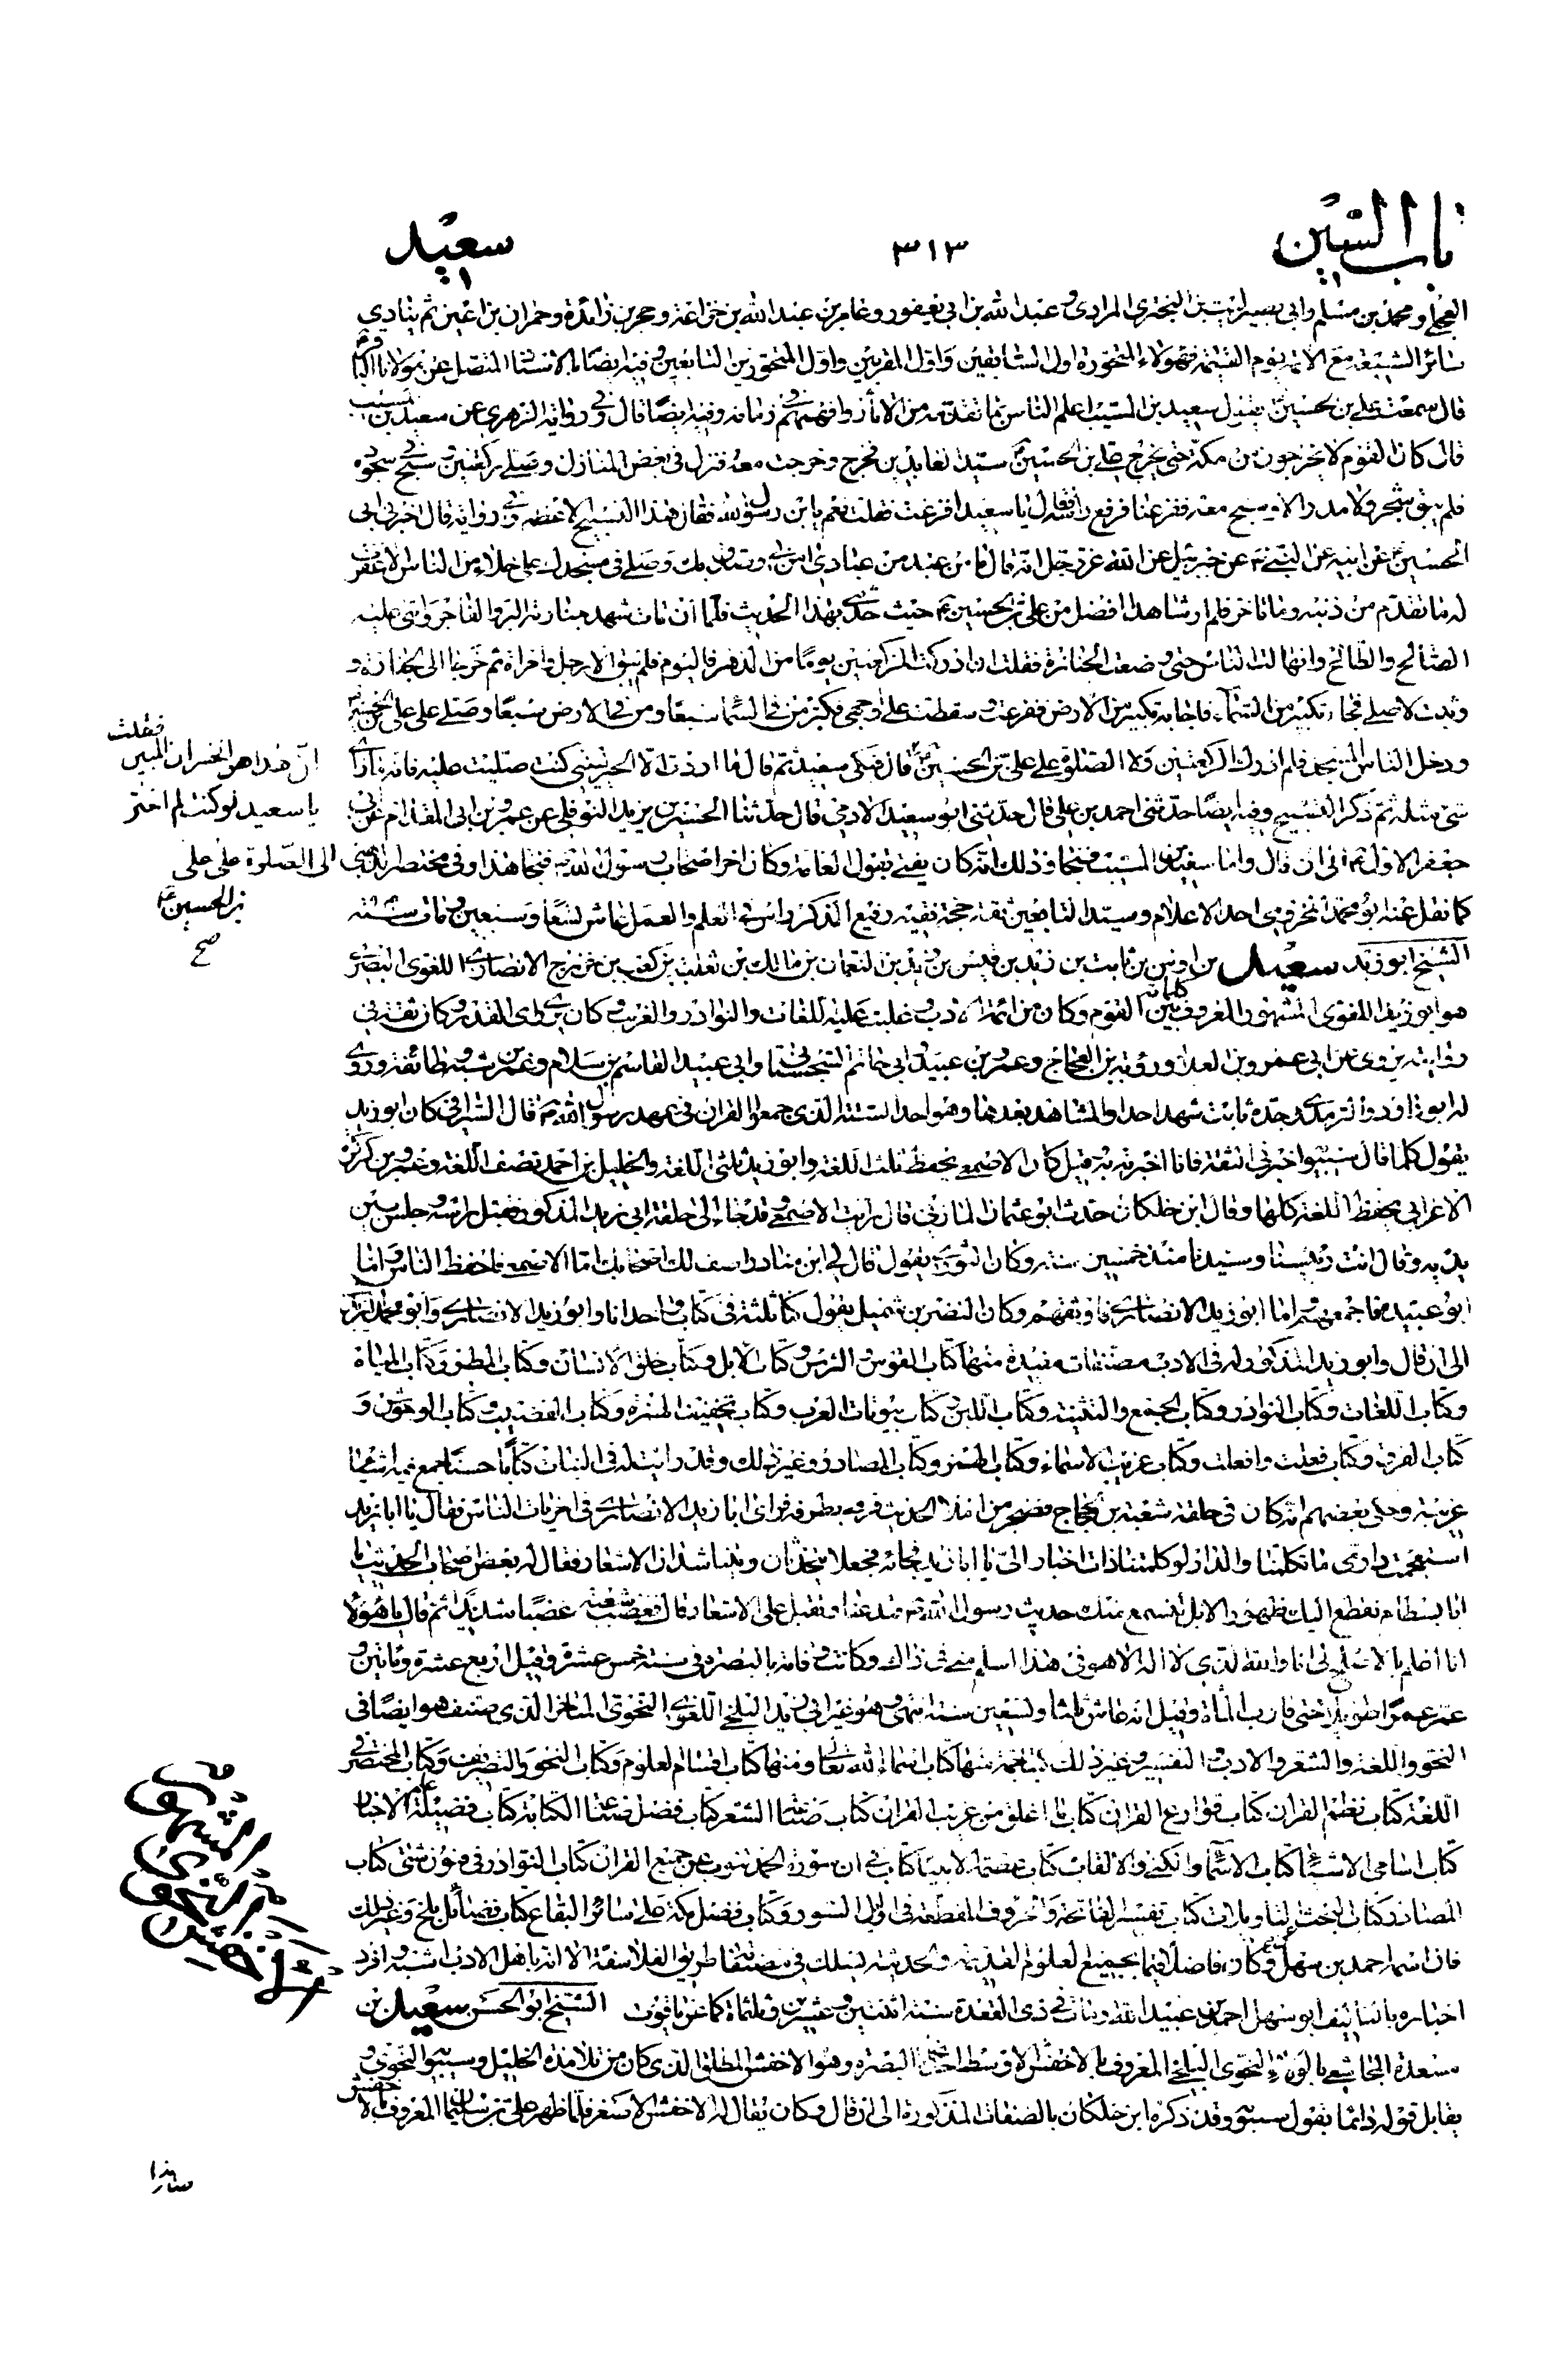 باب السين ٣١٣ سعيد
العجلي ومحمد بن مسلم وابي بصير ليث بن البختري المرادي وعبد الله بن ابي يعفور وعامر بن عبد الله بن خزاعة وحجر بن زائدة وحمران بن اعين ثم ينادي
سائر الشيعة مع الائمة يوم القيمة فهؤلاء المتحورة اول السابقين واول المقربين واول المتحورين من التابعين وفيه ايضا بالاسناد المتصل عن مولانا الباقر
قال سمعت علي بن الحسين يقول سعيد بن المسيب اعلم الناس بما تقدمه من الاثار وافهمهم في زمانه وفيه ايضا قال وفي رواية الزهري عن سعيد بن المسيب
قال كان القوم لا يخرجون من مكة حتى يخرج علي بن الحسين سيد العابدين فخرج وخرجت معه فنزل في بعض المنازل وصلى ركعتين وسبح في سجوده
فلم يبق شجر ولا مدر الا وسبح معه ففزعنا فرفع راسه فقال يا سعيد افزعت فقلت نعم يا بن رسول الله فقال هذا التسبيح الاعظم وفي رواية قال اخبرني ابي
الحسين عن ابيه عن النبي عن جبرئيل عن الله عز وجل انه قال ما من عبد من عبادي امن بي وصدق بك وصلى في مسجدك على خلاء من الناس الا غفرت
له ما تقدم من ذنبه وما تاخر فلم ار شاهدا افضل من علي بن الحسين حيث حدثني بهذا الحديث فلما ان مات شهد جنازته البر والفاجر واثنى عليه
الصالح والطالح وانهالت الناس حتى وضعت الجنازة فقلت ان ادركت الركعتين يوما من الدهر فاليوم فلم يبق الا رجل وامراة ثم خرجا الى الجنازة و
وثبت لاصلي فجاء تكبير من السماء فاجابه تكبير من الارض ففزعت وسقطت على وجهي فكبر من في السماء سبعا ومن في الارض سبعا وصلى على علي بن الحسين
ودخل الناس المسجد فلم ادرك الركعتين ولا الصلوة على علي بن الحسين قال فبكى سعيد ثم قال ما اردت الا الخير ليتني كنت صليت عليه فانه ما راى
شئ مثله ثم ذكر التسبيح وفيه ايضا حدثني احمد بن علي قال حدثني ابو سعيد الادمي قال حدثنا الحسين بن يزيد النوفلي عن عمرو بن ابي المقدام عن ابي
جعفر الاول الى ان قال واما سعيد بن المسيب فنجا وذلك انه كان يفتي بقول العامة وكان اخر اصحاب رسول الله فنجا هذا وفي مختصر الذهبي
كما نقل عنه ابو محمد المخزومي احد الاعلام وسيد التابعين ثقة حجة فقيه رفيع الذكر راس في العلم والعمل عاش تسعا وسبعين ومات سنة
الشيخ ابو زيد سعيد بن اوس بن ثابت بن زيد بن قيس بن زيد بن النعمان بن مالك بن ثعلبة بن كعب بن خزرج الانصاري اللغوي البصري
هو ابو زيد اللغوي المشهور المعروف بين القوم وكان من ائمة الادب وغلبت عليه اللغات والنوادر والغريب وكان يرى راى القدر وكان ثقة في
روايته يروي عن ابي عمرو بن العلاء ورؤبة بن العجاج وعمرو بن عبيد وابي حاتم السجستاني وابي عبيد القاسم بن سلام وعمر بن شبه وطائفة وروى
له ابو داود والترمذي جده ثابت شهد احدا والمشاهد بعدها وهو احد الستة الذي جمعوا القران في عهد رسول الله قال السيرافي كان ابو زيد
يقول كلما قال سيبويه اخبرني الثقة فانا اخبرته به قيل كان الاصمعي يحفظ ثلث اللغة وابو زيد ثلثي اللغة والخليل بن احمد نصف اللغة وعمرو بن كركرة
الاعرابي يحفظ اللغة كلها وقال ابن خلكان حدث ابو عثمان المازني قال رايت الاصمعي وقد جاء الى حلقة ابي زيد المذكور فقبل راسه وجلس بين
يديه وقال انت رئيسنا وسيدنا منذ خمسين سنة وكان الثوري يقول قال لي ابن مناذر اصف لك اصحابك اما الاصمعي فاحفظ الناس واما
ابو عبيدة فاجمعهم واما ابو زيد الانصاري فاوثقهم وكان النضر بن شميل يقول كنا ثلثة في كتاب واحد انا وابو زيد الانصاري وابو محمد اليزيدي
الى ان قال وابو زيد المذكور له في الادب مصنفات مفيدة منها كتاب القوس والترس وكتاب الابل وكتاب خلق الانسان وكتاب المطر وكتاب المياه
وكتاب اللغات وكتاب النوادر وكتاب الجمع والتثنية وكتاب اللبن وكتاب بيوتات العرب وكتاب تخفيف الهمزة وكتاب القضيب وكتاب الوحوش و
كتاب الفرق وكتاب فعلت وافعلت وكتاب غريب الاسماء وكتاب الهمز وكتاب المصادر وغير ذلك وقد رايت له في النبات كتابا حسنا جمع فيه اشياء
غريبة وحكى بعضهم انه كان في حلقة شعبة بن الحجاج فضجر من املاء الحديث فرمى بطرفه فراى ابا زيد الانصاري في اخريات الناس فقال يا ابا زيد
استعجمت دار مي ما تكلمنا والدار لو كلمتنا ذات اخبار الي يا ابا زيد فجائه فجعلا يتحدثان ويتناشدان الاشعار فقال له بعض اصحاب الحديث يا
ابا بسطام نقطع اليك ظهور الابل لنسمع منك حديث رسول الله فتدعنا وتقبل على الاشعار قال فغضب شعبة غضبا شديدا ثم قال يا هؤلاء
انا اعلم بالاصلح لي انا والله الذي لا اله الا هو في هذا اسلم مني في ذاك وكانت وفاته بالبصرة في سنة خمس عشرة وقيل اربع عشرة ومأتين و
عمر عمرا طويلا حتى قارب المأة وقيل انه عاش ثلثا وتسعين سنة انتهى وهو غير ابي زيد البلخي اللغوي النحوي المتاخر الذي صنف هو ايضا في
النحو واللغة والشعر والادب والتفسير وغير ذلك كتبا جمة منها كتاب اسماء الله تعالى ومنها كتاب اقسام العلوم وكتاب النحو والتصريف وكتاب المختصر في
اللغة كتاب نظم القران كتاب قوارع القران كتاب ما اغلق من غريب القران كتاب صناعة الشعر كتاب فضل صناعة الكتابة كتاب فضيلة علم الاخبار
كتاب اسامي الاشياء كتاب الاسماء والكنى والالقاب كتاب عصمة الانبياء كتاب في ان سورة الحمد تنوب عن جميع القران كتاب النوادر في فنون شتى كتاب
المصادر كتاب البحث عن التاويلات كتاب تفسير الفاتحة والحروف المقطعة في اوائل السور وكتاب فضل مكة على سائر البقاع كتاب فضائل بلخ وغير ذلك
فان اسمه احمد بن سهل وكان فاضلا قيما بجميع العلوم القديمة والحديثة يسلك في مصنفاته طريق الفلاسفة الا انه باهل الادب اشبه وافرد
اخباره بالتاليف ابو سهل احمد بن عبيد الله ومات في ذي القعدة سنة اثنتين وعشرين وثلثمائة كما عن ياقوت الشيخ ابو الحسن سعيد بن
مسعدة المجاشعي بالولاء النحوي البلخي المعروف بالاخفش الاوسط احد نحاة البصرة وهو الاخفش المطلق الذي كان من تلامذة الخليل وسيبويه النحوي و
يقابل قوله دائما بقول سيبويه وقد ذكره ابن خلكان بالصفات المذكورة الى ان قال وكان يقال له الاخفش الاصغر فلما ظهر علي بن سليمان المعروف بالاخفش
فقلت
ان هذا هو الخسران المبين
يا سعيد لو كنت لم اختر
الى الصلوة على علي
بن الحسين
صح